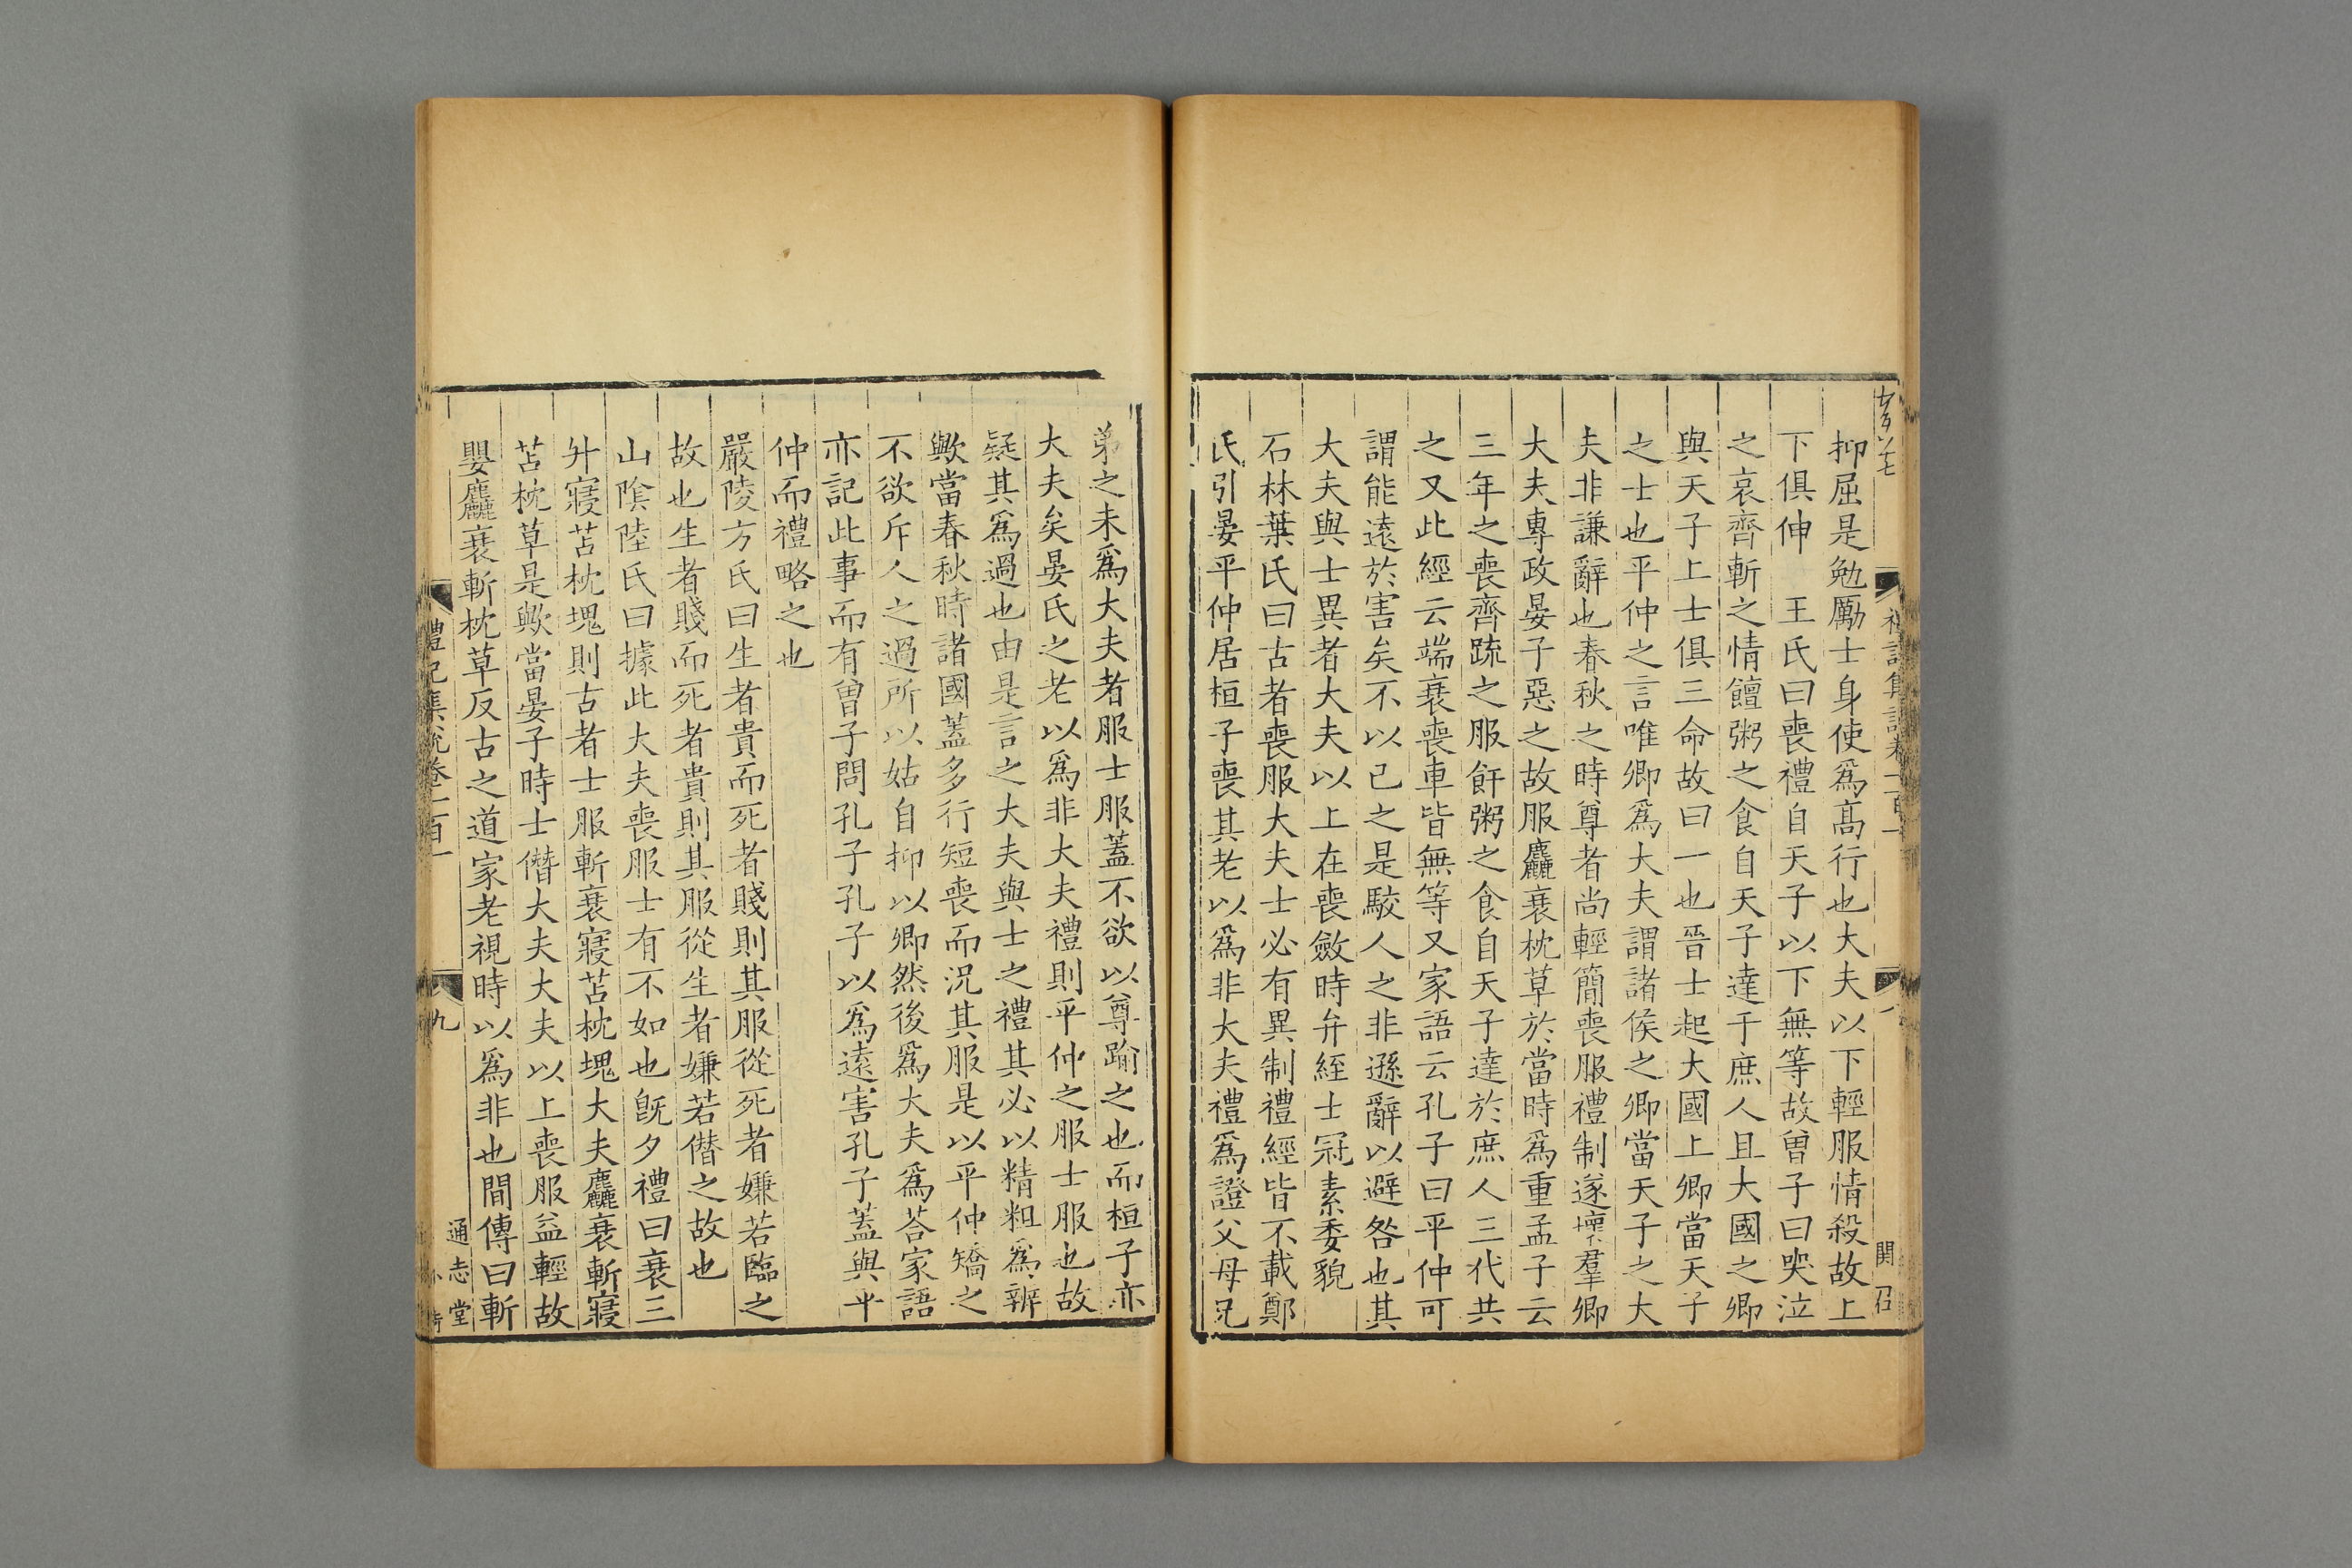 抑屈是勉厲士身使爲髙行也大夫以下輕服情殺故上
下俱伸　王氏曰喪禮自天子以下無等故曾子曰哭泣
之哀齊斬之情饘粥之食自天子達于庶人且大國之卿
與天子上士俱三命故曰一也晉士起大國上卿當天子
之士也平仲之言唯卿爲大夫謂諸侯之卿當天子之大
夫非謙辭也春秋之時尊者尚輕簡喪服禮制遂壞羣卿
大夫專政晏子惡之故服麤衰枕草於當時爲重孟子云
三年之喪齊疏之服飦粥之食自天子達於庶人三代共
之又此經云端衰喪車皆無等又家語云孔子曰平仲可
謂能遠於害矣不以己之是駮人之非遜辭以避咎也其
大夫與士異者大夫以上在喪斂時弁絰士冠素委貌
石林葉氏曰古者喪服大夫士必有異制禮經皆不載鄭
氏引晏平仲居桓子喪其老以爲非大夫禮爲證父母兄
弟之未爲大夫者服士服蓋不欲以尊踰之也而桓子亦
大夫矣晏氏之老以爲非大夫禮則平仲之服士服也故
疑其爲過也由是言之大夫與士之禮其必以精粗爲辨
歟當春秋時諸國蓋多行短喪而況其服是以平仲矯之
不欲斥人之過所以姑自抑以卿然後爲大夫爲荅家語
亦記此事而有曾子問孔子孔子以爲遠害孔子蓋與平
仲而禮略之也
嚴陵方氏曰生者貴而死者賤則其服從死者嫌若臨之
故也生者賤而死者貴則其服從生者嫌若僭之故也
山隂陸氏曰據此大夫喪服士有不如也旣夕禮曰衰三
升寢苫枕塊則古者士服斬衰寢苫枕塊大夫麤衰斬寢
苫枕草是歟當晏子時士僭大夫大夫以上喪服益輕故
嬰麤衰斬枕草反古之道家老視時以爲非也閒傳曰斬
禮記集說卷一百一
九
通志堂